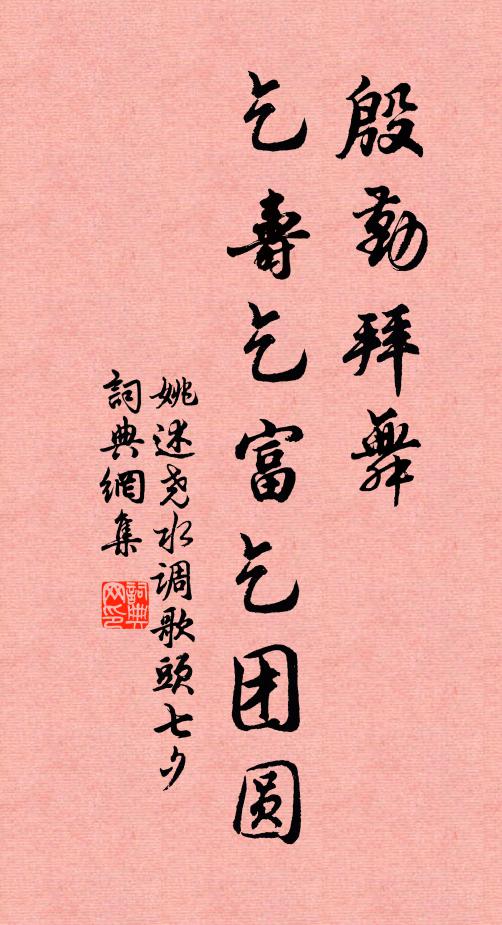 殷勤拜舞
乞壽乞富乞团圆
姚述尧水调歌頭七夕
詞典網集
詞典网印